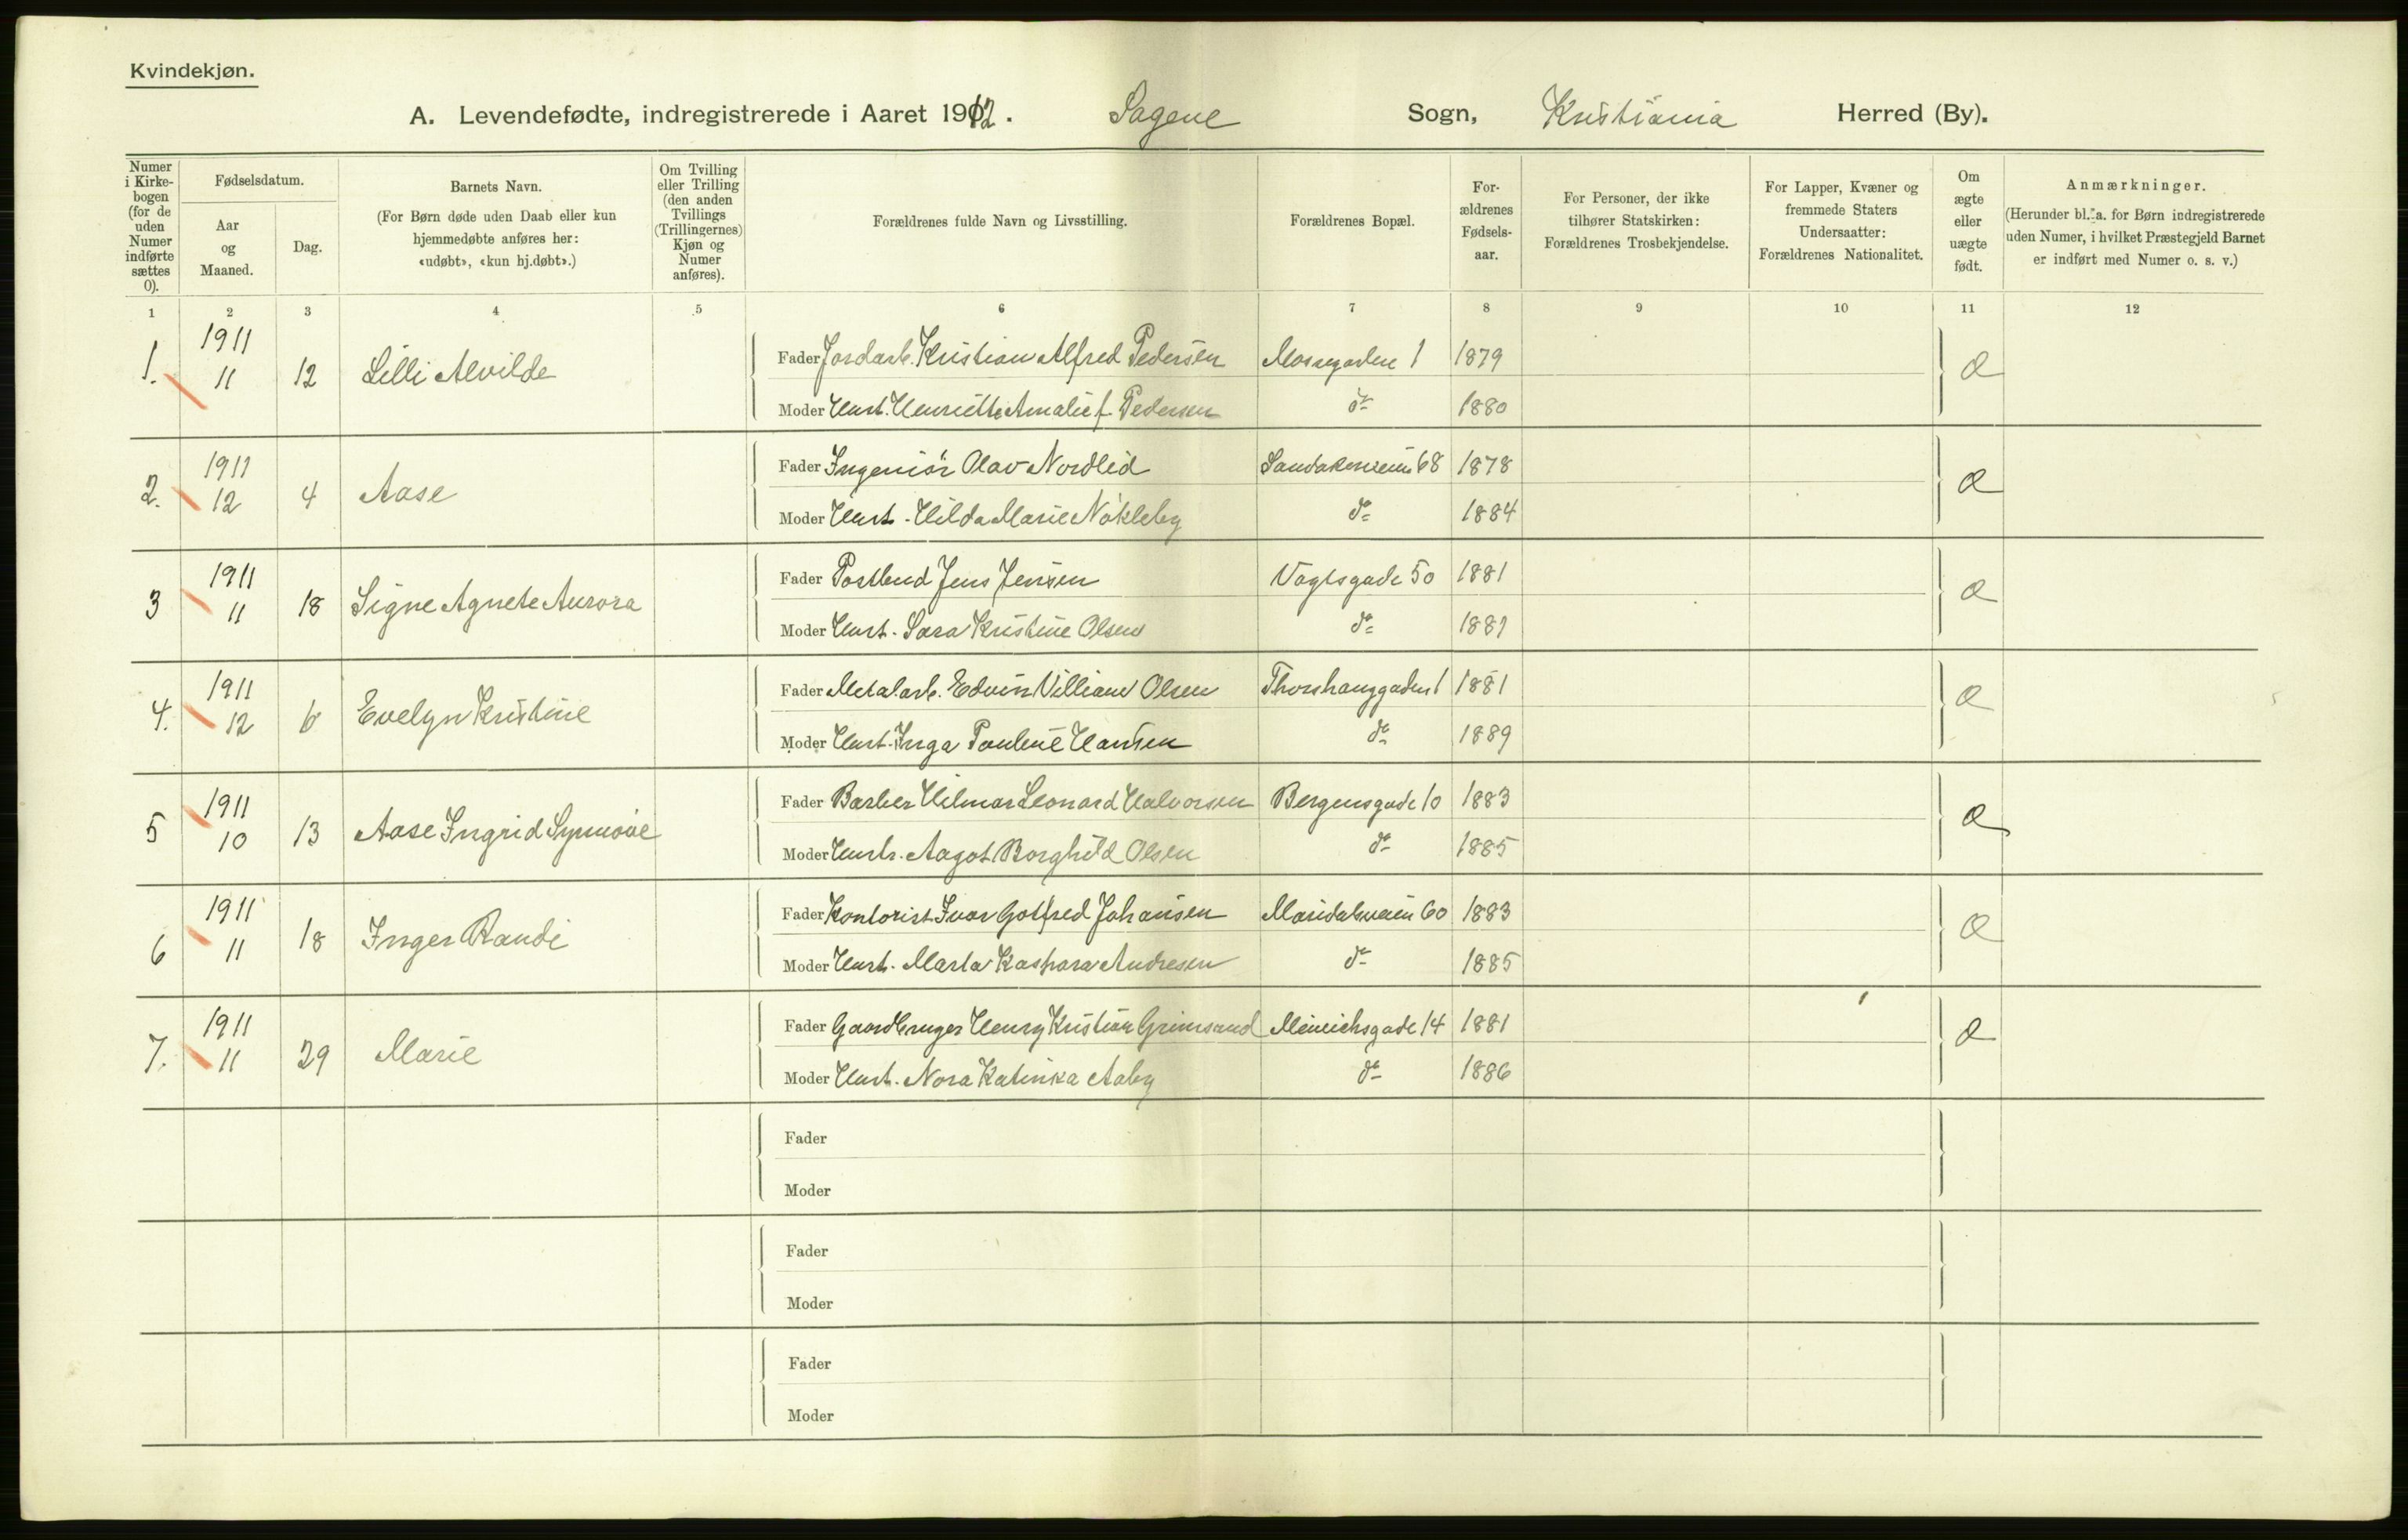 Kvindekjøn.
A. Levendefødte, indregistrerede i Aaret 1912. Sagene Sogn, Kristiania Herred (By).
Numer i Kirkebogen (for de uden Numer indførte sættes 0).
Fødselsdatum.
Aar og Maaned.
Dag.
Barnets Navn.
(For Børn døde uden Daab eller kun hjemmedøbte anføres her: «udøbt», «kun hj.døbt».)
Om Tvilling eller Trilling (den anden Tvillings (Trillingernes) Kjøn og Numer anføres).
Forældrenes fulde Navn og Livsstilling.
Forældrenes Bopæl.
Forældrenes Fødselsaar.
For Personer, der ikke tilhører Statskirken: Forældrenes Trosbekjendelse.
For Lapper, Kvæner og fremmede Staters Undersaatter: Forældrenes Nationalitet.
Om ægte eller uægte født.
Anmærkninger.
(Herunder bl. a. for Børn indregistrerede uden Numer, i hvilket Præstegjeld Barnet er indført med Numer o. s. v.)
1 2 3 4 5 6 7 8 9 10 11 12
1. 1911 11 12 Lilli Alvilde
Fader Jordarb. Kristian Alfred Pedersen Mossegaden 1 1879 Æ
Moder Hust. Henriette Amalie f. Pedersen do 1880
2. 1911 12 4 Aase
Fader Ingeniør Olav Nordlid Sandakerveien 68 1878 Æ
Moder Hust. Hilda Marie Nökleby do 1884
3 1911 11 18 Signe Agnete Aurora
Fader Postbud Jens Jensen Vogtsgade 50 1881 Æ
Moder Hust. Sara Kristine Olsen do 1881
4. 1911 12 6 Evelyn Kristine
Fader Metalarb. Edvin Villiam Olsen Thorshauggaden 1 1881 Æ
Moder Hust. Inga Pauline Hansen do 1889
5 1911 10 13 Aase Ingrid Synnöve
Fader Barber Hilmar Leonard Halvorsen Bergensgade 10 1883 Æ
Moder Hustr. Aagot Borghild Olsen do 1885
6 1911 11 18 Inger Randi
Fader Kontorist Ivar Gotfred Johansen Maridalsveien 60 1883 Æ
Moder Hust. Marta Kaspara Andresen do 1885
7. 1911 11 29 Marie
Fader Gaardbruger Henry Kristian Grimsrud Meinichsgade 14 1881 Æ
Moder Hust. Nora Katinka Aaby do 1886
Fader
Moder
Fader
Moder
Fader
Moder